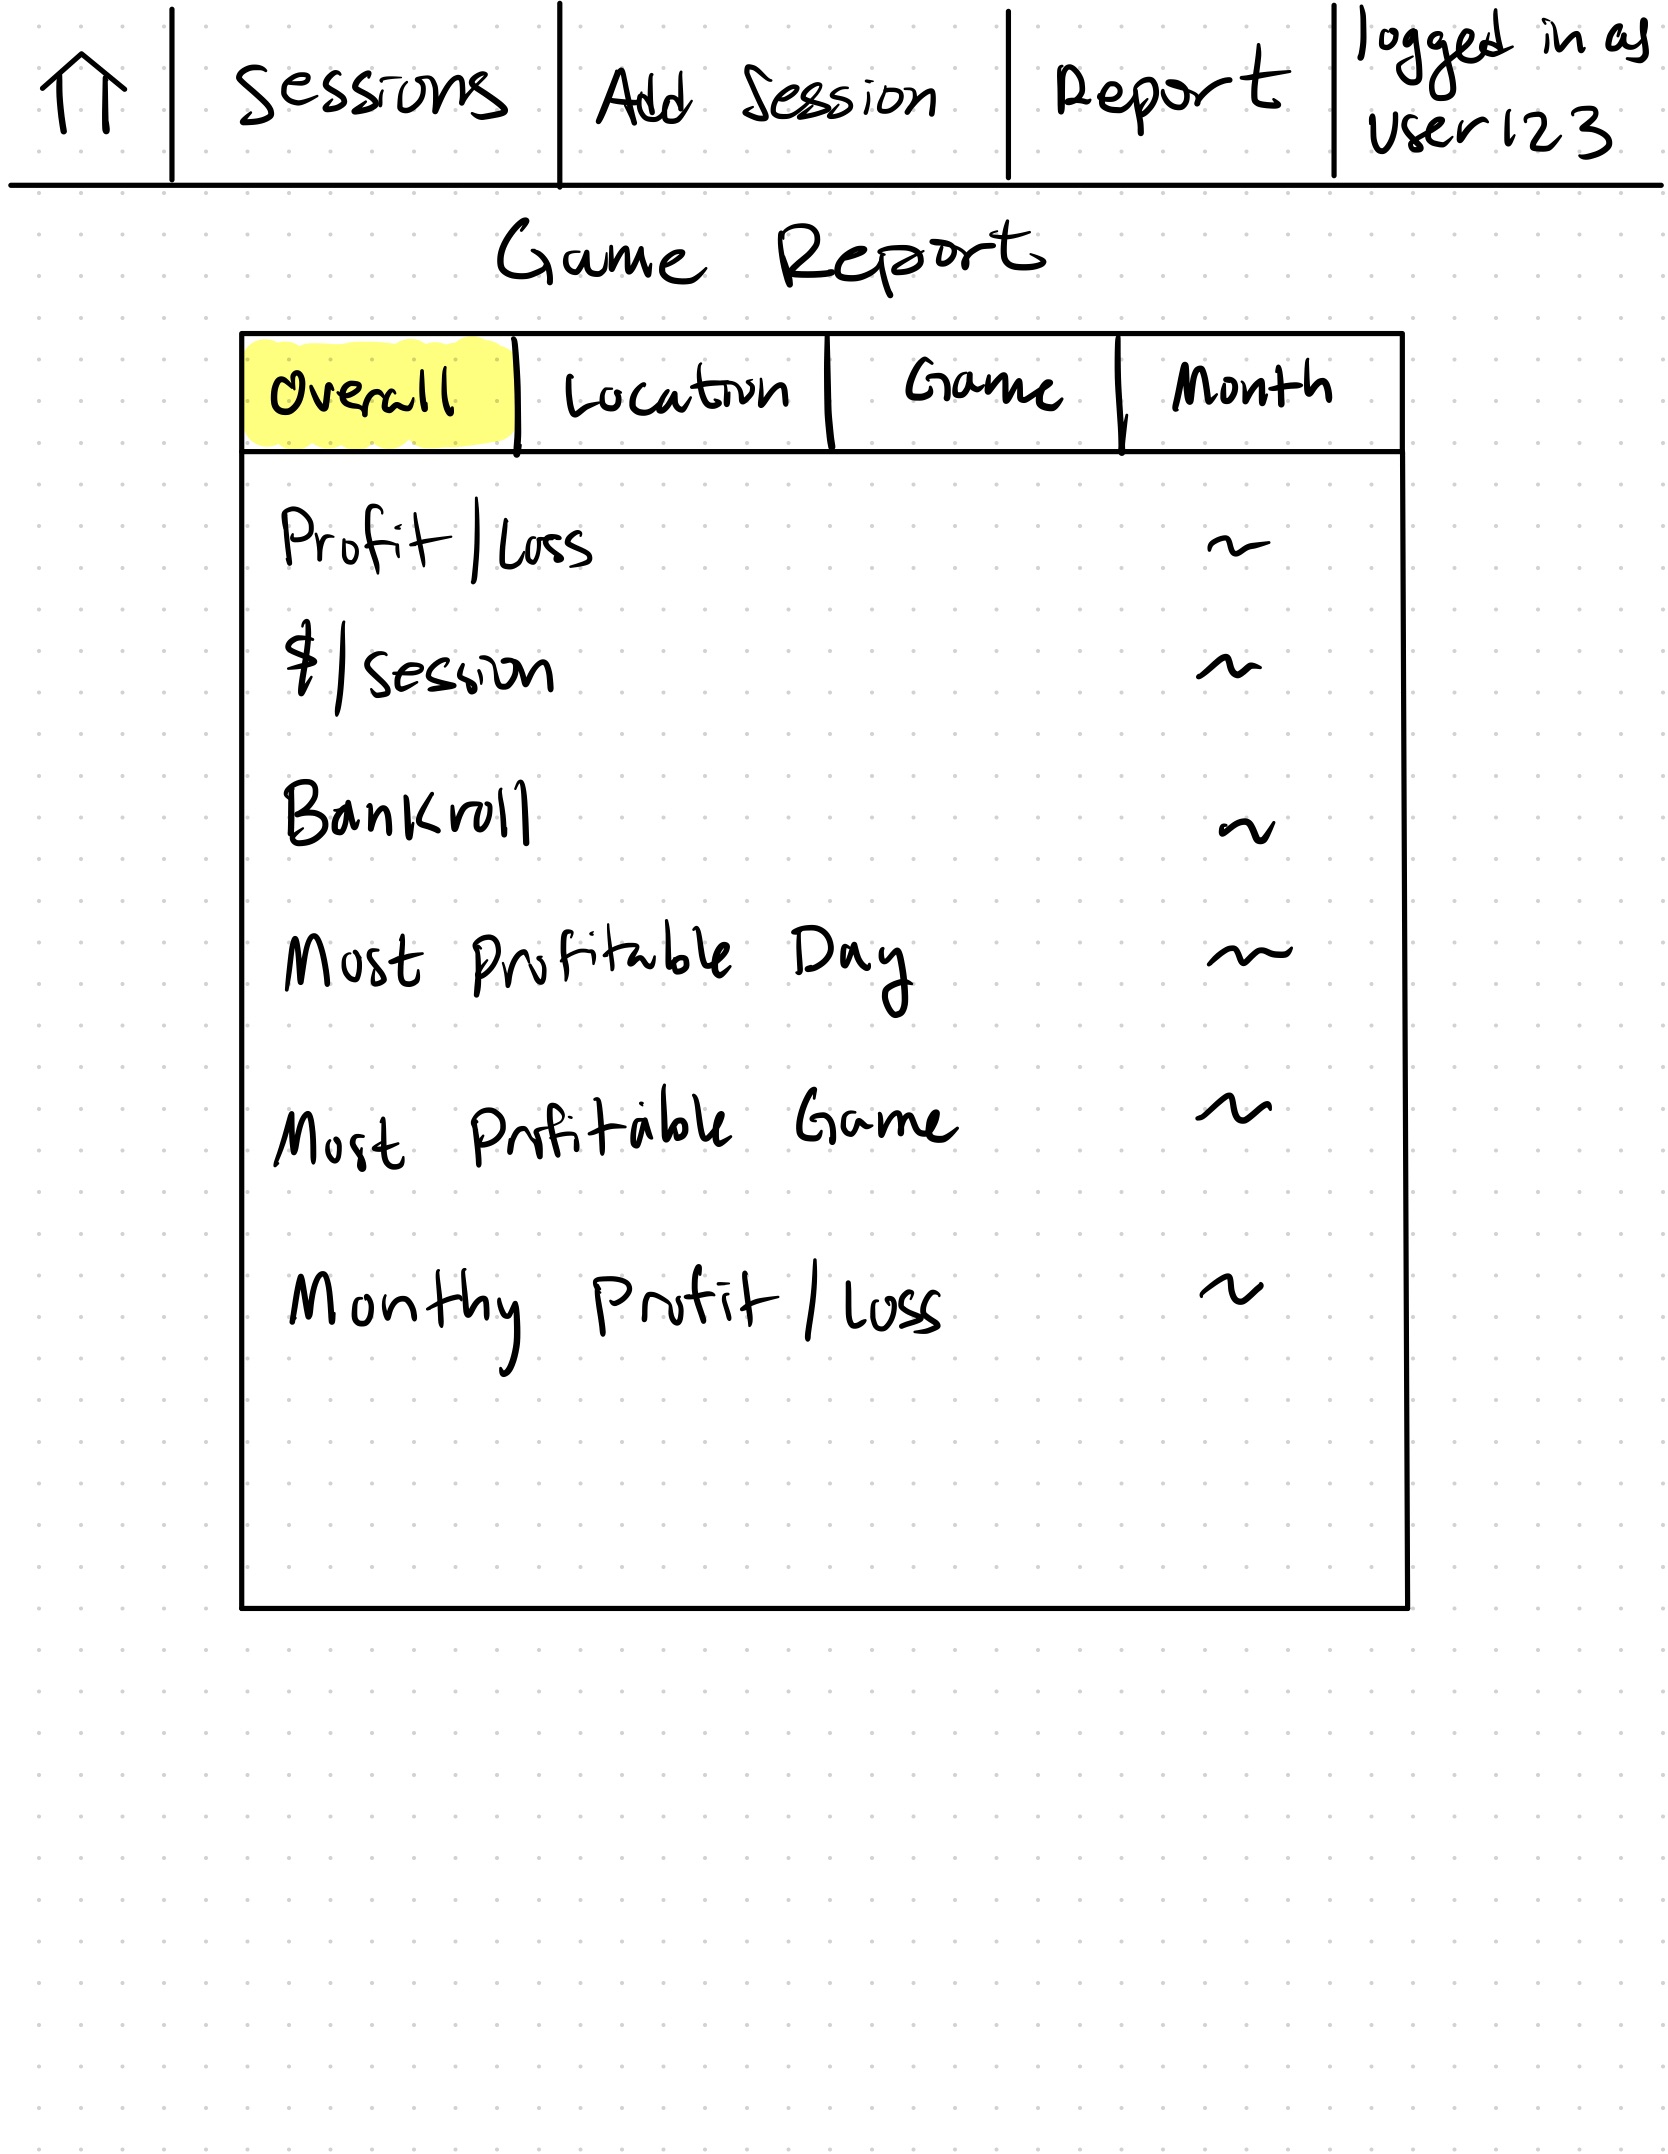 Sessions
Add Session
Report
logged in as
user123
Game Report
Overall
Location
Game
Month
Profit/Loss
~
$/session
~
Bankroll
~
Most Profitable Day
~
Most Profitable Game
~
Monthy Profit/Loss
~